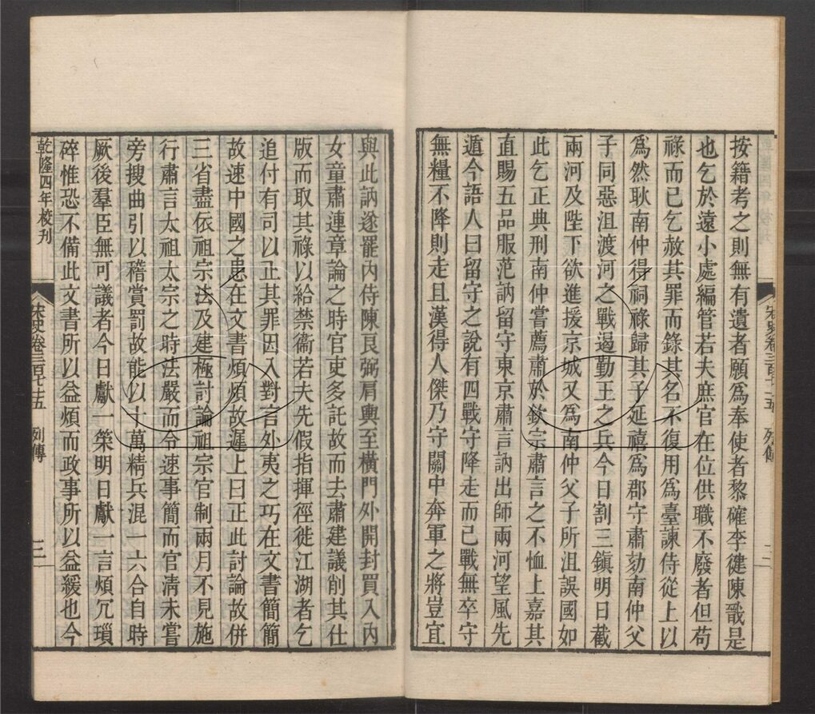 按籍考之則無有遺者願爲奉使者黎確李健陳戩是
也乞於遠小處編管若夫庶官在位供職不廢者但苟
祿而已乞赦其罪而錄其名不復用爲臺諫侍從上以
爲然耿南仲得祠祿歸其子延禧爲郡守肅劾南仲父
子同惡沮渡河之戰遏勤王之兵今日割三鎮明日截
兩河及陛下欲進援京城又爲南仲父子所沮誤國如
此乞正典刑南仲嘗薦肅於欽宗肅言之不恤上嘉其
直賜五品服范訥留守東京肅言訥出師兩河望風先
遁今語人曰留守之說有四戰守降走而已戰無卒守
無糧不降則走且漢得人傑乃守關中奔軍之將豈宜
與此訥遂罷內侍陳良弼肩輿至橫門外開封買入內
女童肅連章論之時官吏多託故而去肅建議削其仕
版而取其祿以給禁衛若夫先假指揮徑徙江湖者乞
追付有司以正其罪因入對言外夷之巧在文書簡簡
故速中國之患在文書煩煩故遲上曰正此討論故併
三省盡依祖宗法及建極討論祖宗官制兩月不見施
行肅言太祖太宗之時法嚴而令速事簡而官清未嘗
旁搜曲引以稽賞罰故能以十萬精兵混一六合自時
厥後羣臣無可議者今日獻一策明日獻一言煩冗瑣
碎惟恐不備此文書所以益煩而政事所以益緩也今
乾隆四年校刊
宋史卷三百七十五 列傳 三